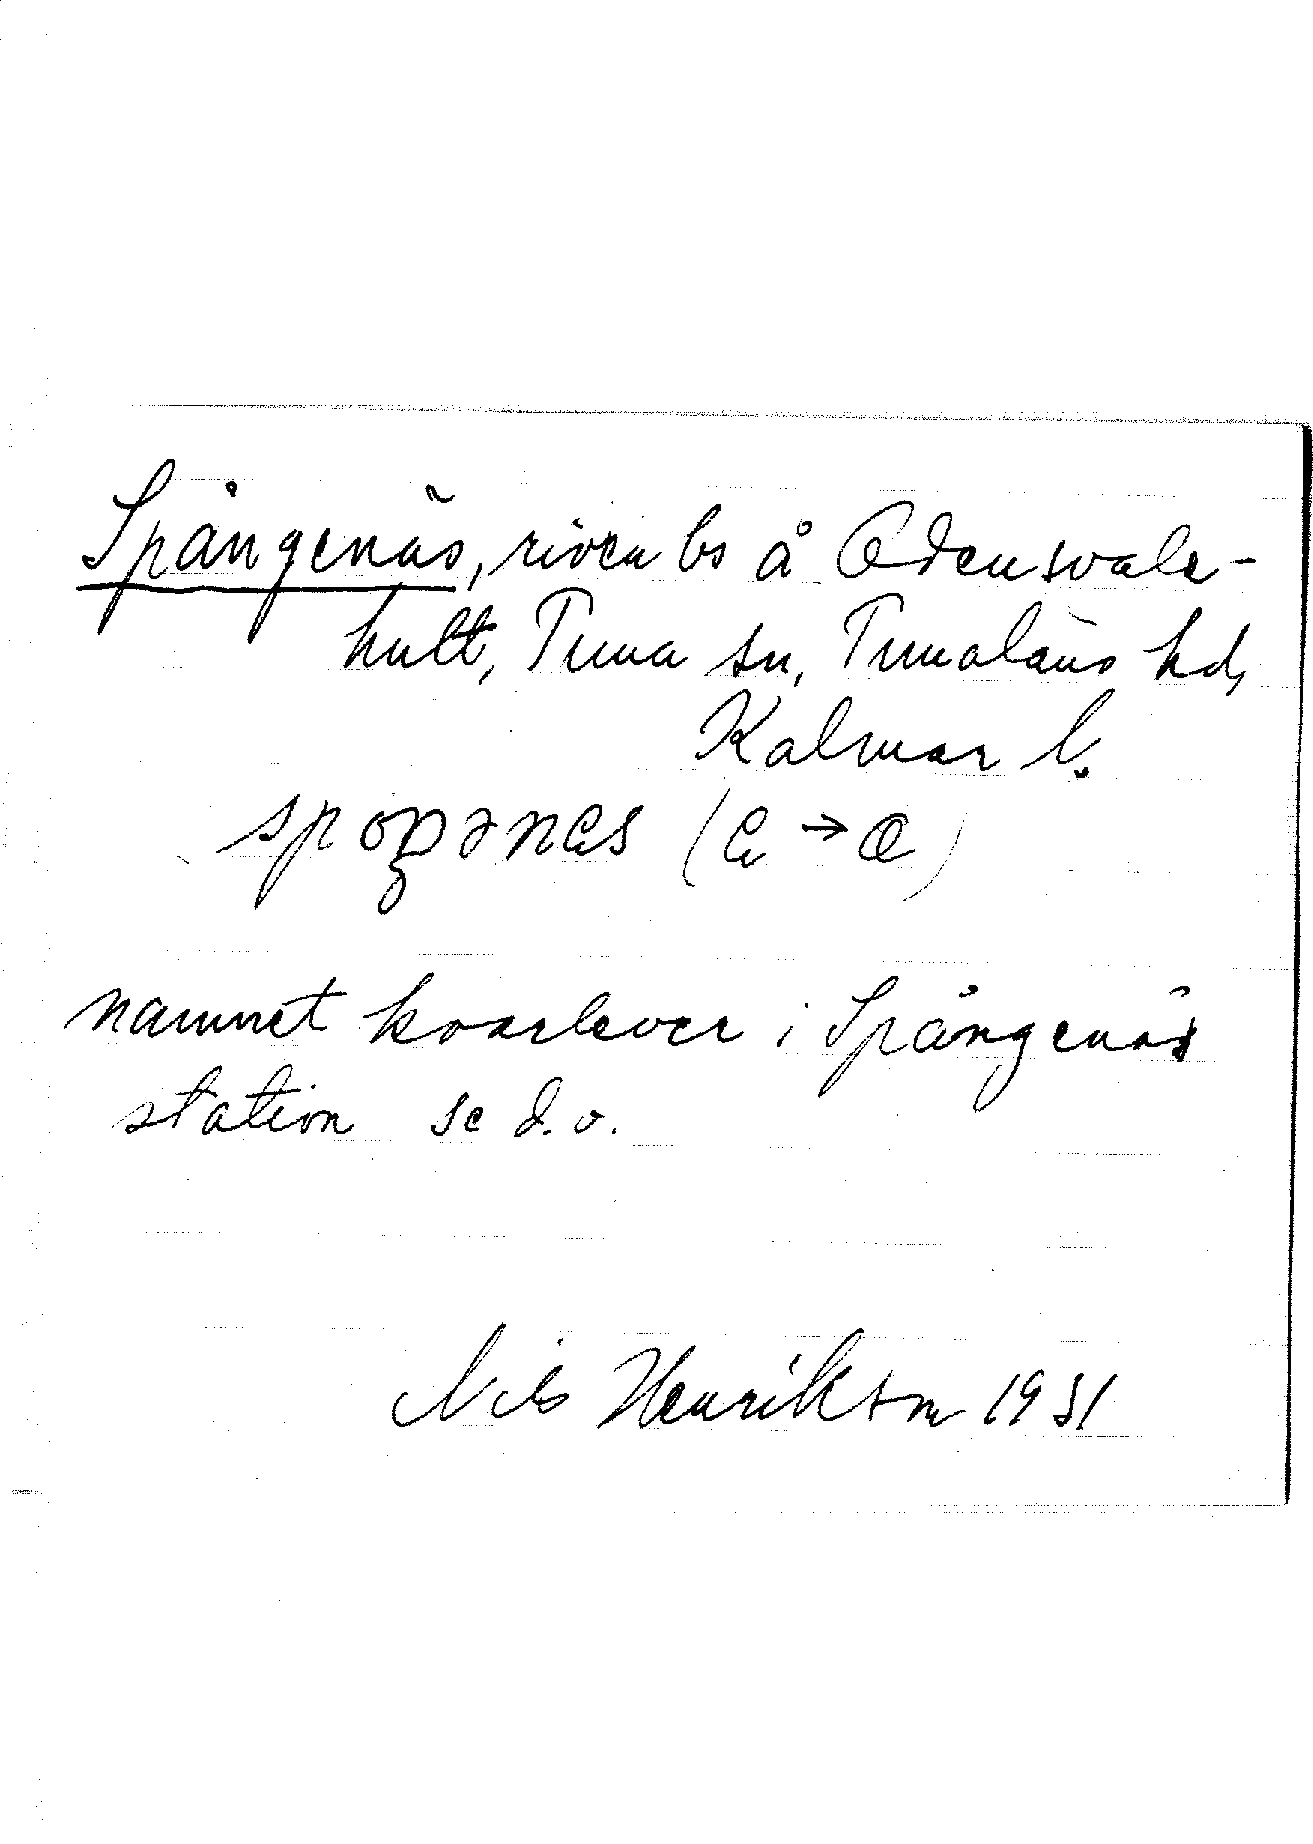 Spångenäs, riven bs å Odensvale-
hult, Tuna sn, Tunaläns hd,
Kalmar l.
(→)
namnet kvarlever i Spångenäs
station se d.o.
Nils Henrikson 1931